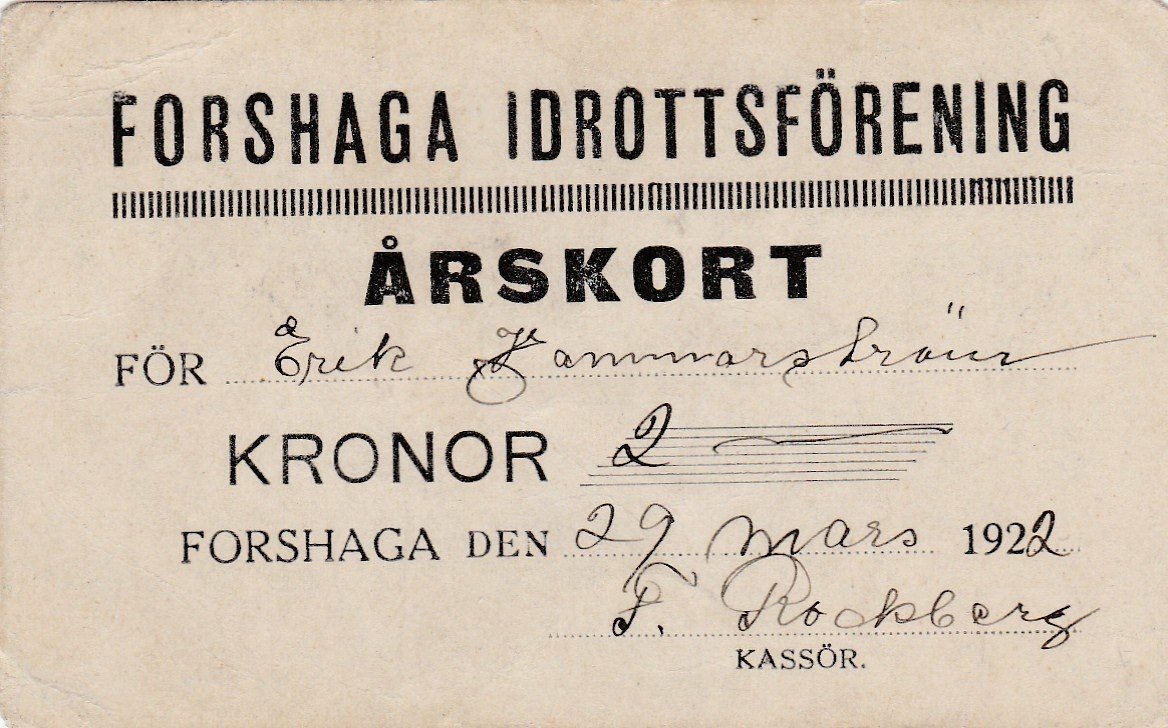 FORSHAGA IDROTTSFÖRENING
ÅRSKORT
FÖR Erik Hammarström
KRONOR 2 —
FORSHAGA DEN 29 mars 1922
F. Rockberg
KASSÖR.